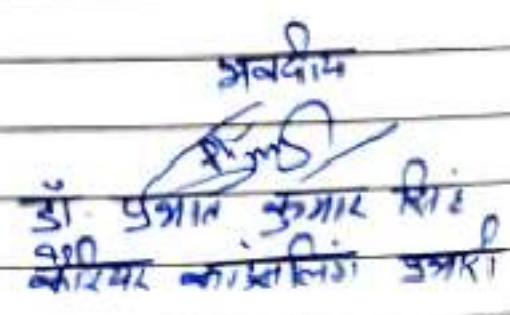 भवदीय
डॉ. प्रभात कुमार सिंह
कैरियर काउंसलिंग प्रभारी